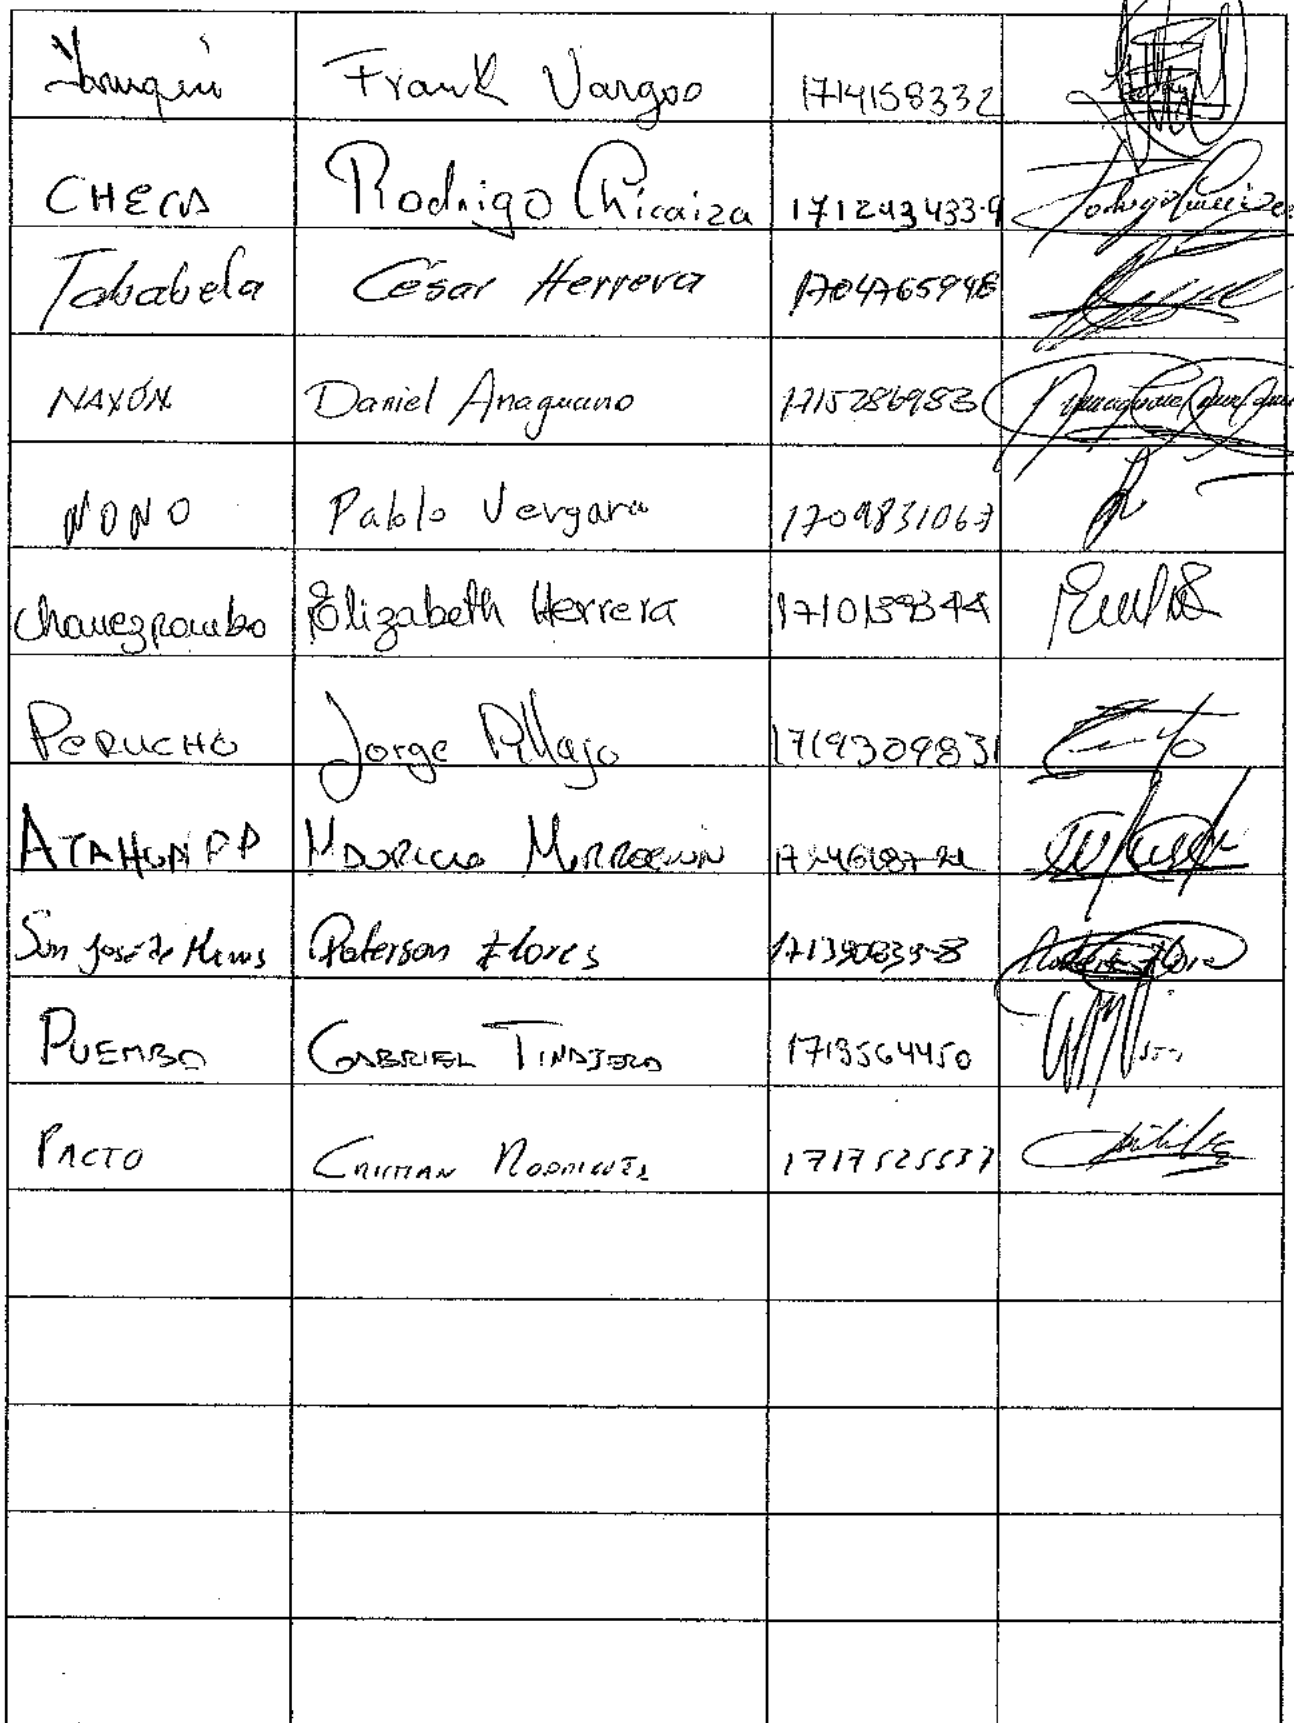 Yaruquí Frank Vargas 1714158332
CHECA Rodrigo Chicaiza 171243433-9
Tababela César Herrera 1704765948
NAYÓN Daniel Anaguano 1715286983
NONO Pablo Vergara 1709831067
Chavezpamba Elizabeth Herrera 1710159344
PERUCHO Jorge Pillajo 1719309831
ATAHUALPA MAURICIO MARROQUIN
San José de Minas Paterson Flores 171390839-8
PUEMBO GABRIEL TINAJERO 1713564450
PACTO CRISTIAN RODRIGUEZ 1717525537